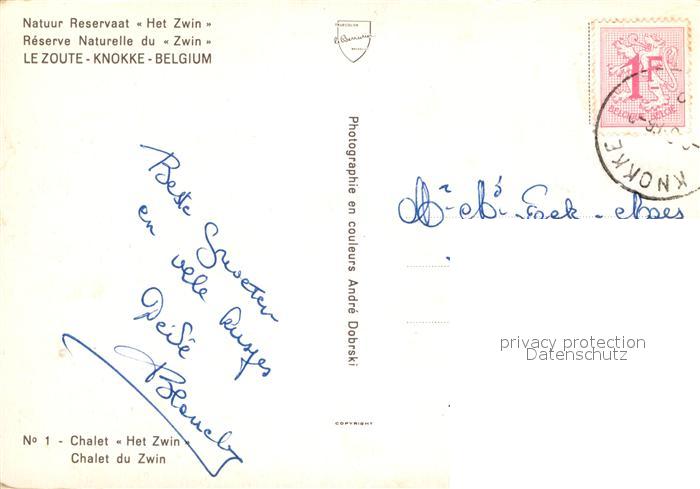 Natuur Reservaat « Het Zwin »
Réserve Naturelle du « Zwin »
LE ZOUTE - KNOKKE - BELGIUM
1F
BELGIË-BELGIQUE
KNOKKE
Photographie en couleurs André Dobrski
Beste Groeten
en vele kusjes
Blanche
privacy protection
Datenschutz
COPYRIGHT
Nº 1 - Chalet « Het Zwin »
Chalet du Zwin